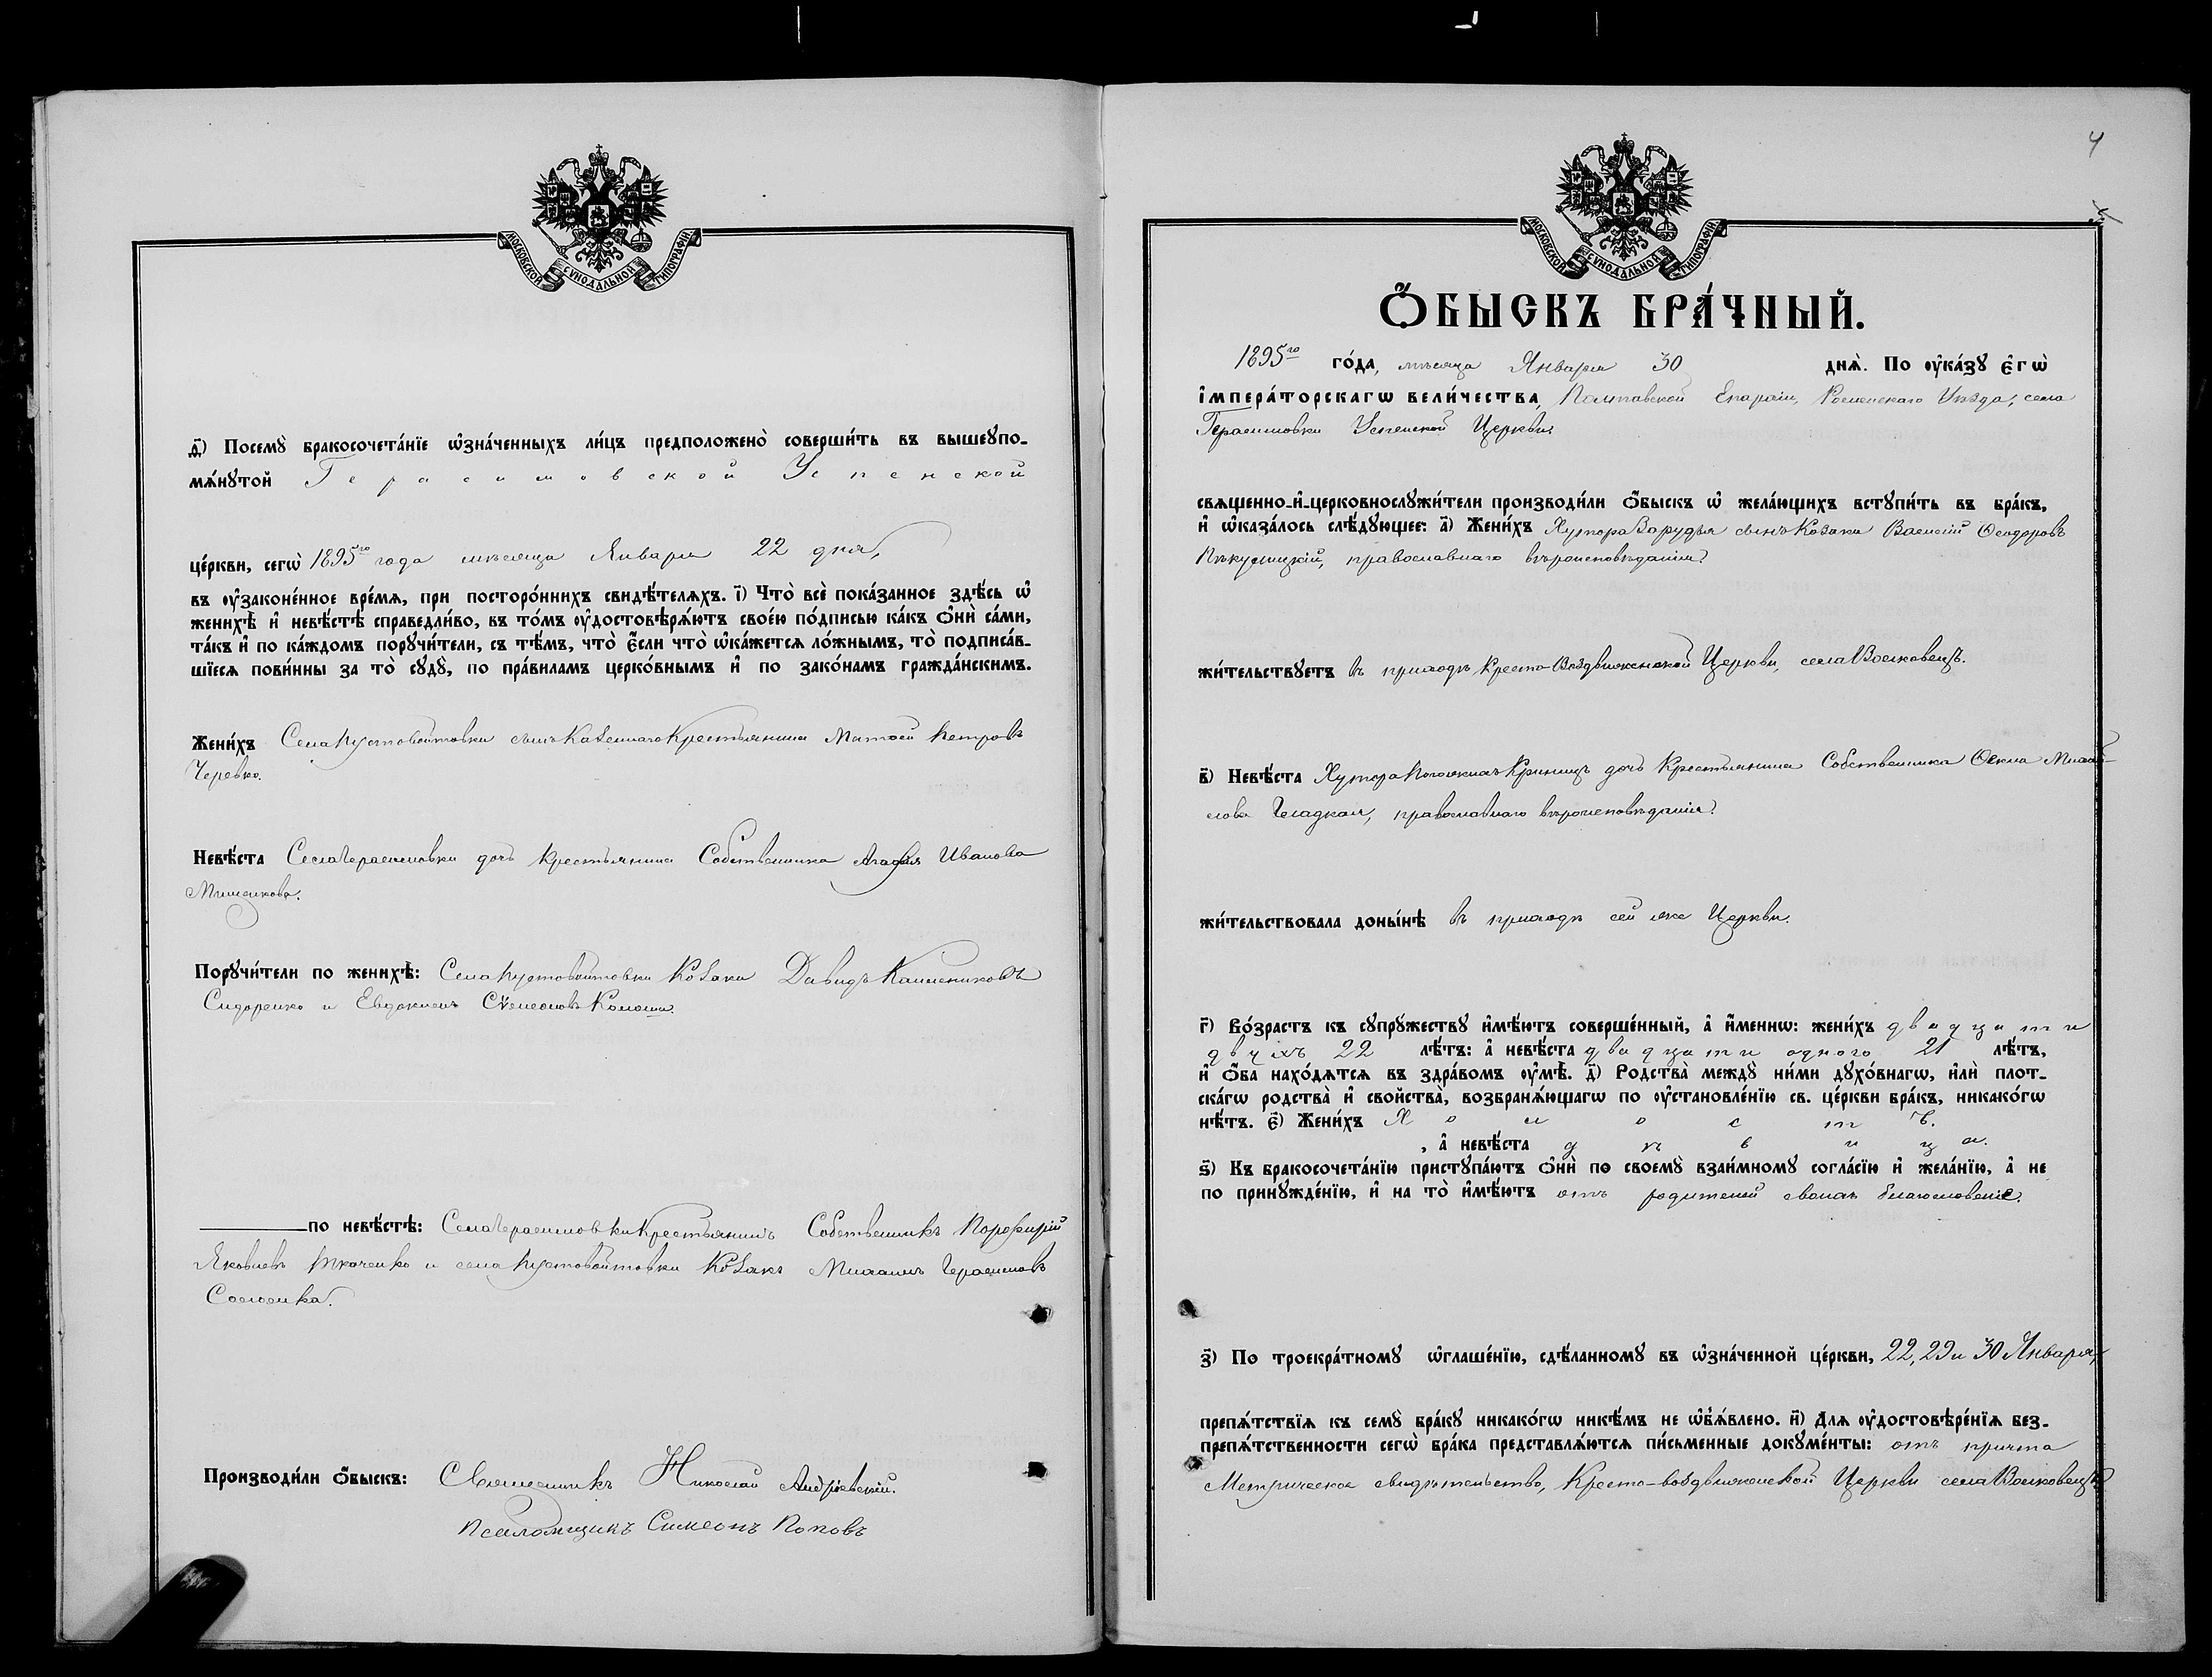 МОСКОВСКОЙ СѴНОДАЛЬНОЙ ТИПОГРАФІИ.
д҃) Посемꙋ̀ бракосочета́нїе ѡ҆зна́ченныхъ ли́цъ предположено̀ соверши́ть въ вышеꙋпо-
мѧ́нꙋтой Герасимовской Успенской
це́ркви, сегѡ̀ 1895го года мѣсяца Января 22 дня,
въ ᲂу҆законе́нное вре́мѧ, при посторо́ннихъ свидѣ́телѧхъ. і҃) Что̀ всѐ пока́занное здѣ́сь ѡ҆
женихѣ̀ и҆ невѣ́стѣ справедли́во, въ то́мъ ᲂу҆достовѣрѧ́ютъ свое́ю по́дписью ка́къ ѻ҆нѝ са́ми,
та́къ и҆ по ка́ждомъ порꙋчи́тели, съ тѣ́мъ, что̀ є҆́сли что̀ ѡ҆ка́жетсѧ ло́жнымъ, то̀ подписа́в-
шїесѧ пови́нны за то̀ сꙋдꙋ̀, по пра́виламъ церко́внымъ и҆ по зако́намъ гражда́нскимъ.
Жени́хъ Села Пустовойтовки сынъ Казеннаго Крестьянина Матѳей Петровъ
Черевко.
Невѣ́ста Села Герасимовки дочь Крестьянина Собственника Агафія Иванова
Мишенкова.
Порꙋчи́тели по женихѣ̀: Села Пустовойтовки Козаки Давидъ
Сидоренко и Евдокимъ Сѵмеоновъ
по невѣ́стѣ: Села Герасимовки Крестьянинъ Собственникъ Порфирій
Яковлевъ Ткаченко и села Пустовойтовки Козакъ Михаилъ Герасимовъ
Производи́ли ѻ҆́быскъ: Священникъ Николай Андріевскій.
Псаломщикъ Симеонъ Поповъ
4
МОСКОВСКОЙ СѴНОДАЛЬНОЙ ТИПОГРАФІИ.
Ѻ҆́БЫСКЪ БРА́ЧНЫЙ.
1895го го́да, мѣсяца Января 30 днѧ̀. По ᲂу҆ка́зꙋ є҆гѡ̀
і҆мпера́торскагѡ вели́чества, Полтавской Епархіи, Роменскаго Уѣзда, села
Герасимовки Успенской Церкви.
свѧщенно-и҆-церковнослꙋжи́тели производи́ли ѻ҆́быскъ ѡ҆ жела́ющихъ встꙋпи́ть въ бра́къ,
и҆ ѡ҆каза́лось слѣ́дꙋющее: а҃) Жени́хъ Хутора Зарудья сынъ Козака Василій Ѳеодоровъ
православнаго вѣроисповѣданія.
жи́тельствꙋетъ въ приходѣ Кресто-Воздвиженской Церкви, села Волковецъ.
в҃) Невѣ́ста Хутора Погожихъ Криницъ дочь Крестьянина Собственника Ѳекла Михай-
лова Гладкая, православнаго вѣроисповѣданія.
жи́тельствовала доны́нѣ въ приходѣ сей же Церкви.
г҃) Во́зрастъ къ сꙋпрꙋ́жествꙋ и҆мѣ́ютъ соверше́нный, а҆ и҆́меннѡ: жени́хъ двадцати
двухъ 22 лѣ́тъ: а҆ невѣ́ста двадцати одного 21 лѣ́тъ,
и҆ ѻ҆́ба нахо́дѧтсѧ въ здра́вомъ ᲂу҆мѣ̀. д҃) Родства̀ междꙋ̀ ни́ми дꙋхо́внагѡ, и҆лѝ плот-
ска́гѡ родства̀ и҆ сво́йства̀, возбранѧ́ющагѡ по ᲂу҆становле́нїю св. це́ркви бра́къ, никако́гѡ
нѣ́тъ. є҃) Жени́хъ Холостъ.
, а҆ невѣ́ста дѣвица.
ѕ҃) Къ бракосочета́нїю пристꙋпа́ютъ ѻ҆нѝ по своемꙋ̀ взаи́мномꙋ согла́сїю и҆ жела́нїю, а҆ не
по принꙋжде́нїю, и҆ на то̀ и҆мѣ́ютъ отъ родителей своихъ благословеніе.
з҃) По троекра́тномꙋ ѡ҆глаше́нїю, сдѣ́ланномꙋ въ ѡ҆зна́ченной це́ркви, 22, 29 и 30 Января,
препѧ́тствїѧ къ семꙋ̀ бра́кꙋ никако́гѡ никѣ́мъ не ѡ҆б̾ѧ́влено. и҃) Длѧ ᲂу҆достовѣре́нїѧ без-
препѧ́тственности сегѡ̀ бра́ка представлѧ́ютсѧ пи́сьменные докꙋме́нты: отъ причта
Метрическое свидѣтельство, Кресто-воздвиженской Церкви села Волковецъ